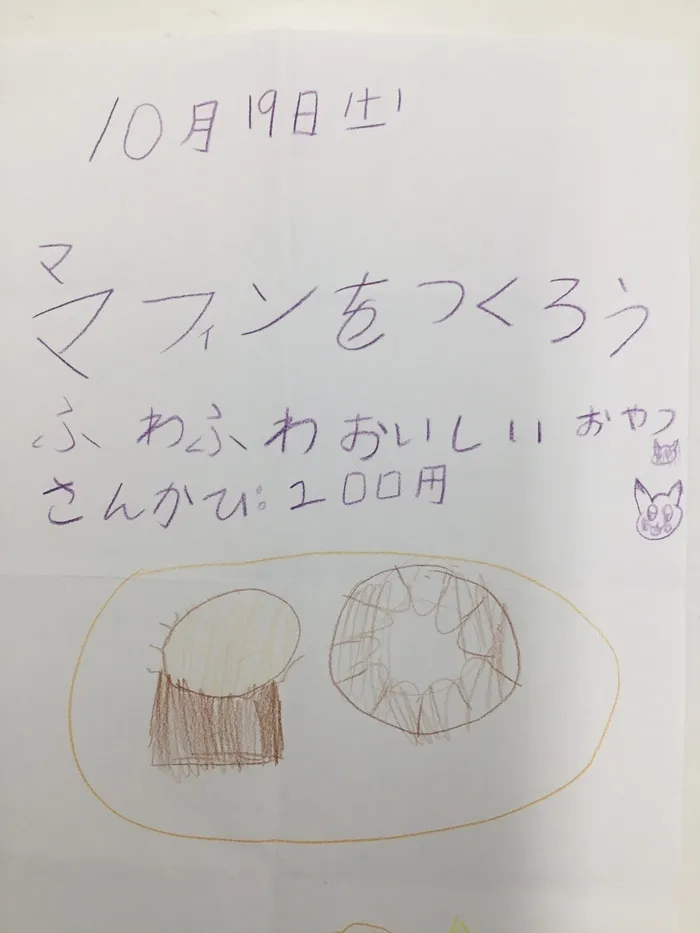 10月19日(土)
マ
マフィンをつくろう
ふわふわおいしいおやつ
さんかひ:100円